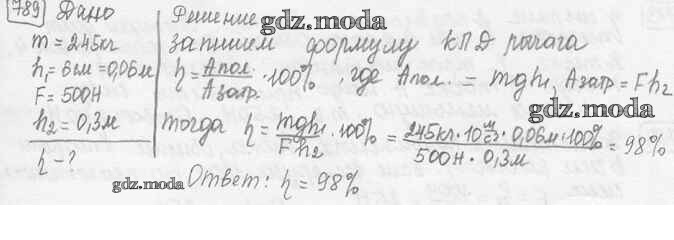 789 Дано
m = 245кг
h₁ = 6см = 0,06м
F = 500Н
h₂ = 0,3м
η - ?
Решение
gdz.moda
запишем формулу КПД рычага
η = Aпол./Aзатр. · 100%, где Aпол. = mgh₁, Aзатр = Fh₂
gdz.moda
тогда η = mgh₁/Fh₂ · 100% = 245кг · 10 м/с² · 0,06м · 100%/500Н · 0,3м = 98%
gdz.moda
Ответ: η = 98%